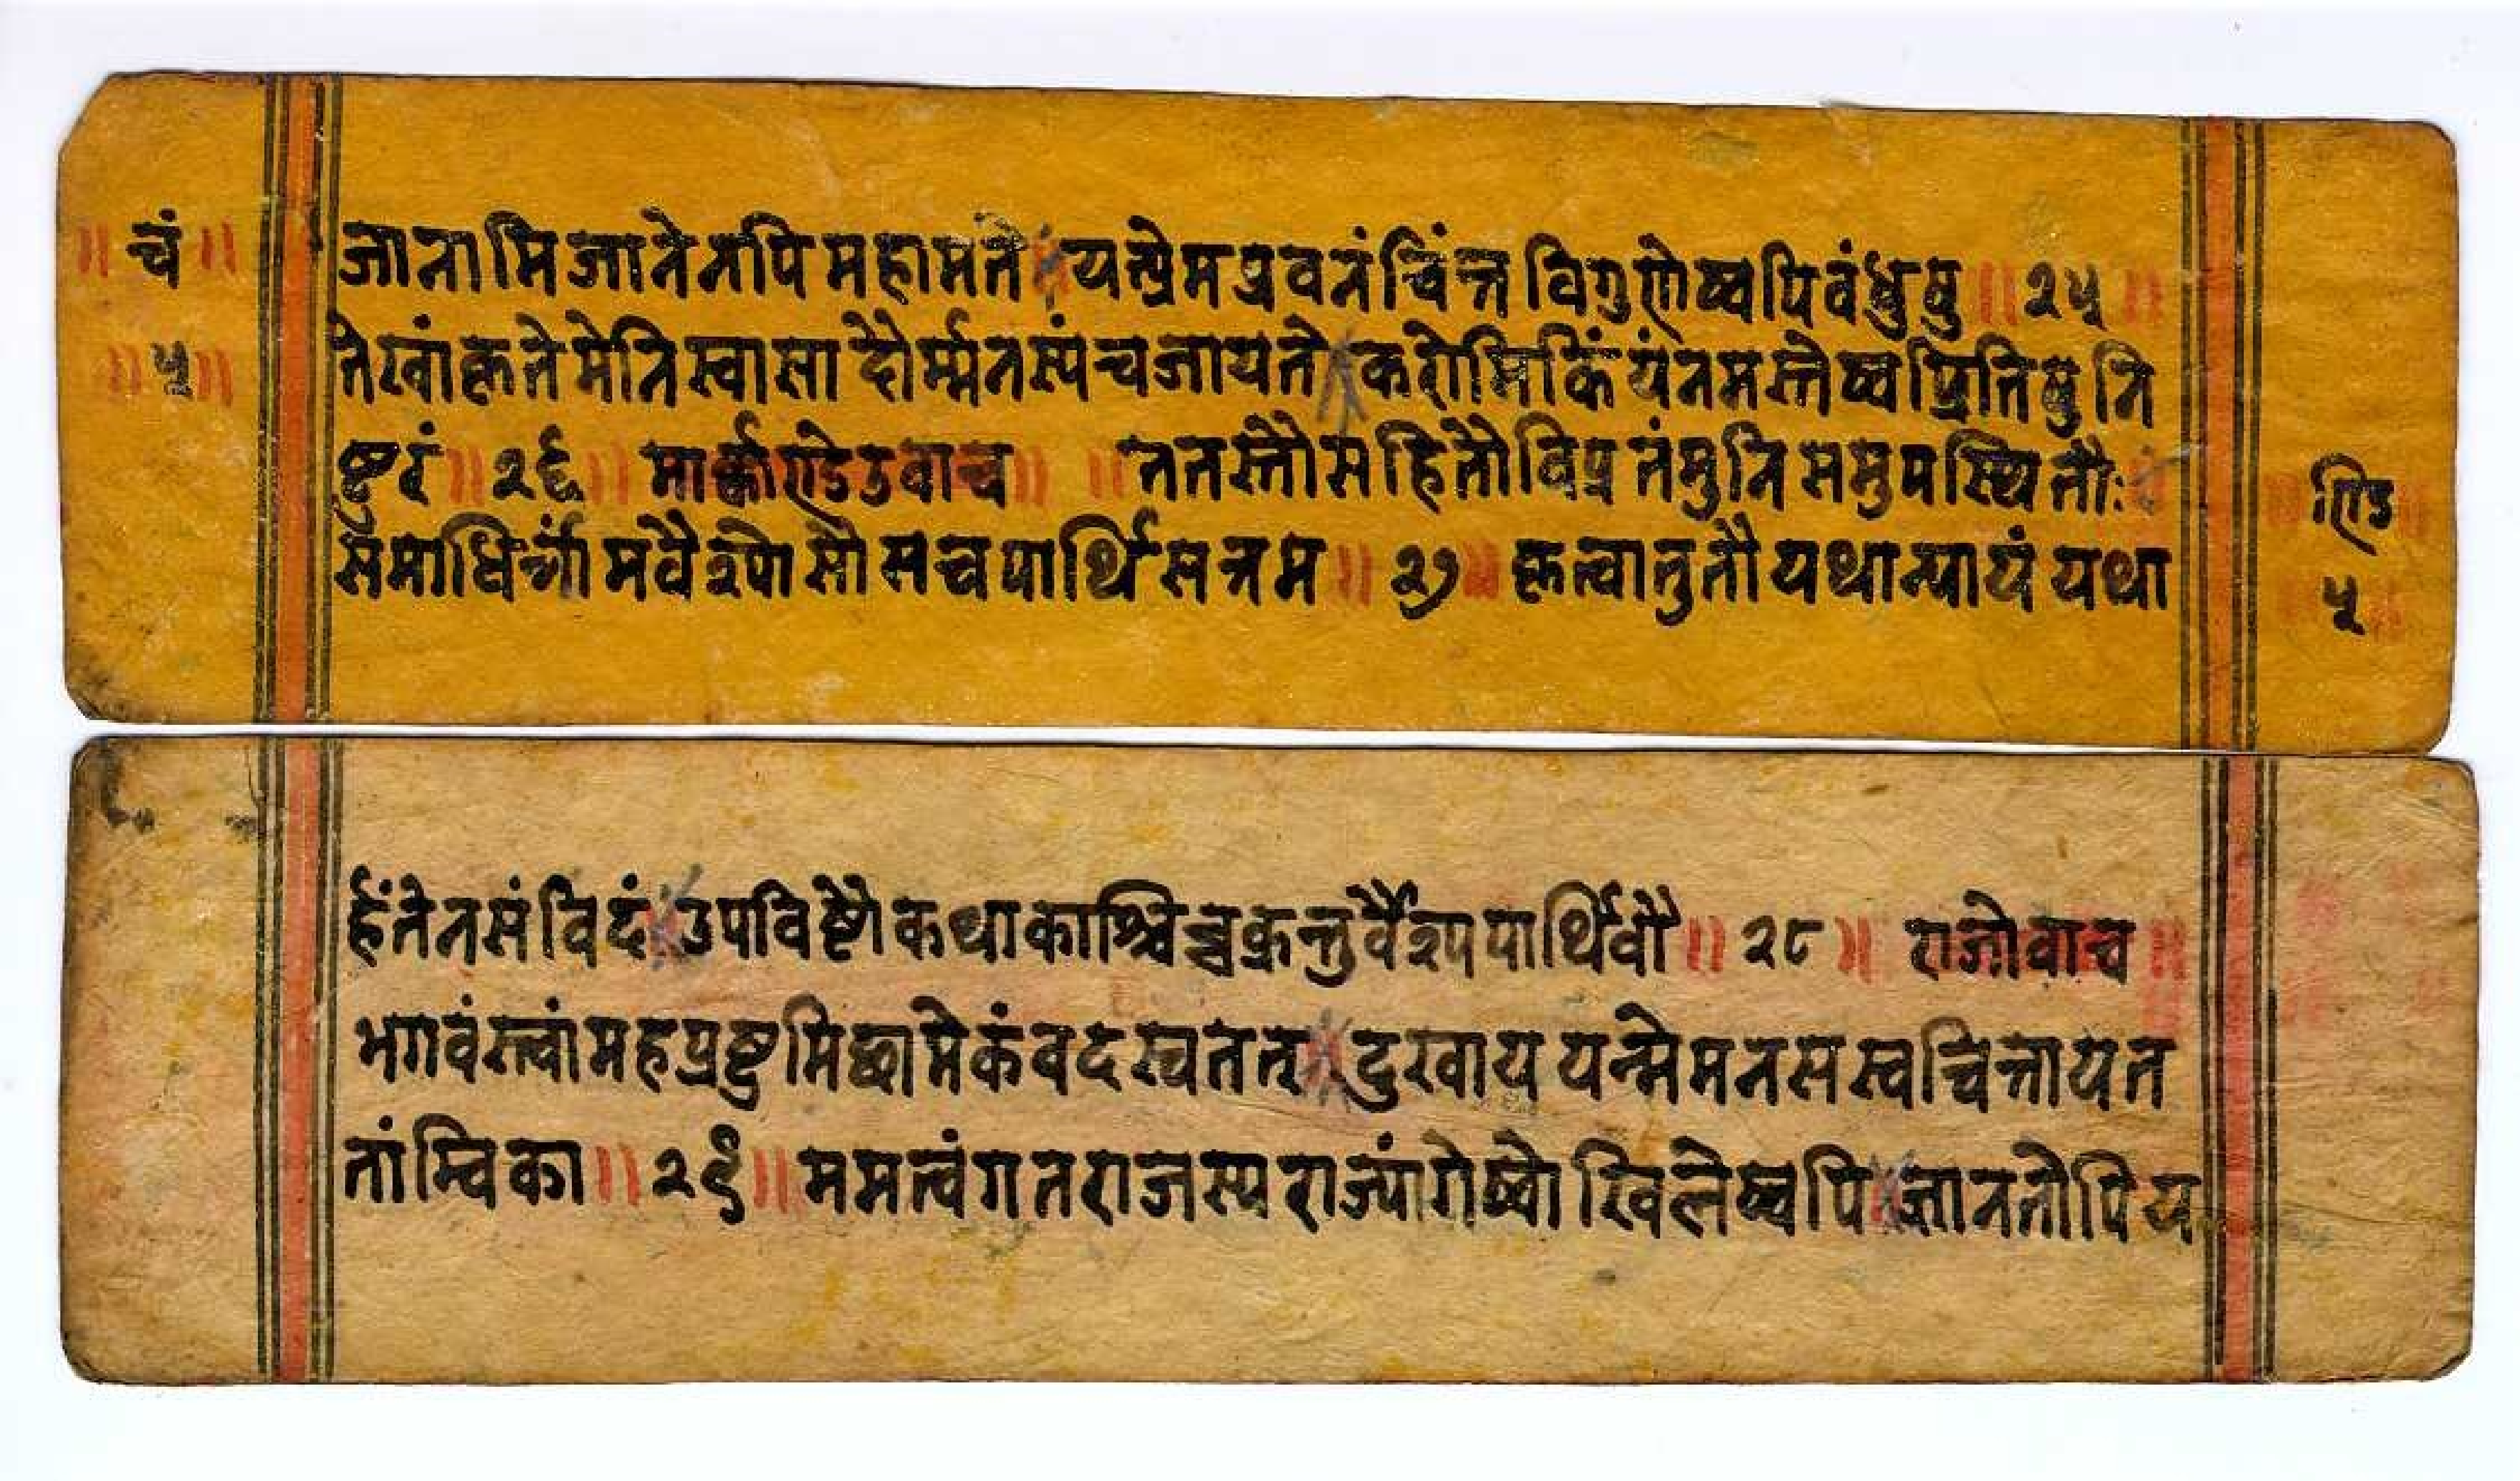 ॥ चं ॥
॥ ५ ॥
जानामि जानेनपि महामते यत्प्रेमप्रवनं चिंत्त विगुणेष्वपि वंधुषु ॥ २५ ॥
तेखां कृते मे निस्वासा दौर्म्मनस्यं च जायते करोमि किं यंन मस्तेष्वप्रितिषु नि
ष्टुरं ॥ २६ ॥ मार्क्कण्डे उवाच ॥ ॥ ततस्तौ सहितौ विप्र तं मुनि समुपस्थितौः
समाधिर्न्नाम वैश्पो सौ स च पार्थिसत्तम ॥ २७ ॥ कृत्वा तु तौ यथान्यायं यथा
ण्डि
५
र्हं तेन संविदं उपविष्टौ कथा काश्चिच्चक्रन्तुर्वैश्प पार्थिवौ ॥ २८ ॥ राजोवाच ॥
भगवंस्त्वां महप्रष्टुमिछामेकं वदस्वतत् दुखाय यन्मे मनस स्वचित्तायत
तांम्विका ॥ २९ ॥ ममत्वं गतराजस्य राज्यांगेष्वोखिलेष्वपि जानतोपि य